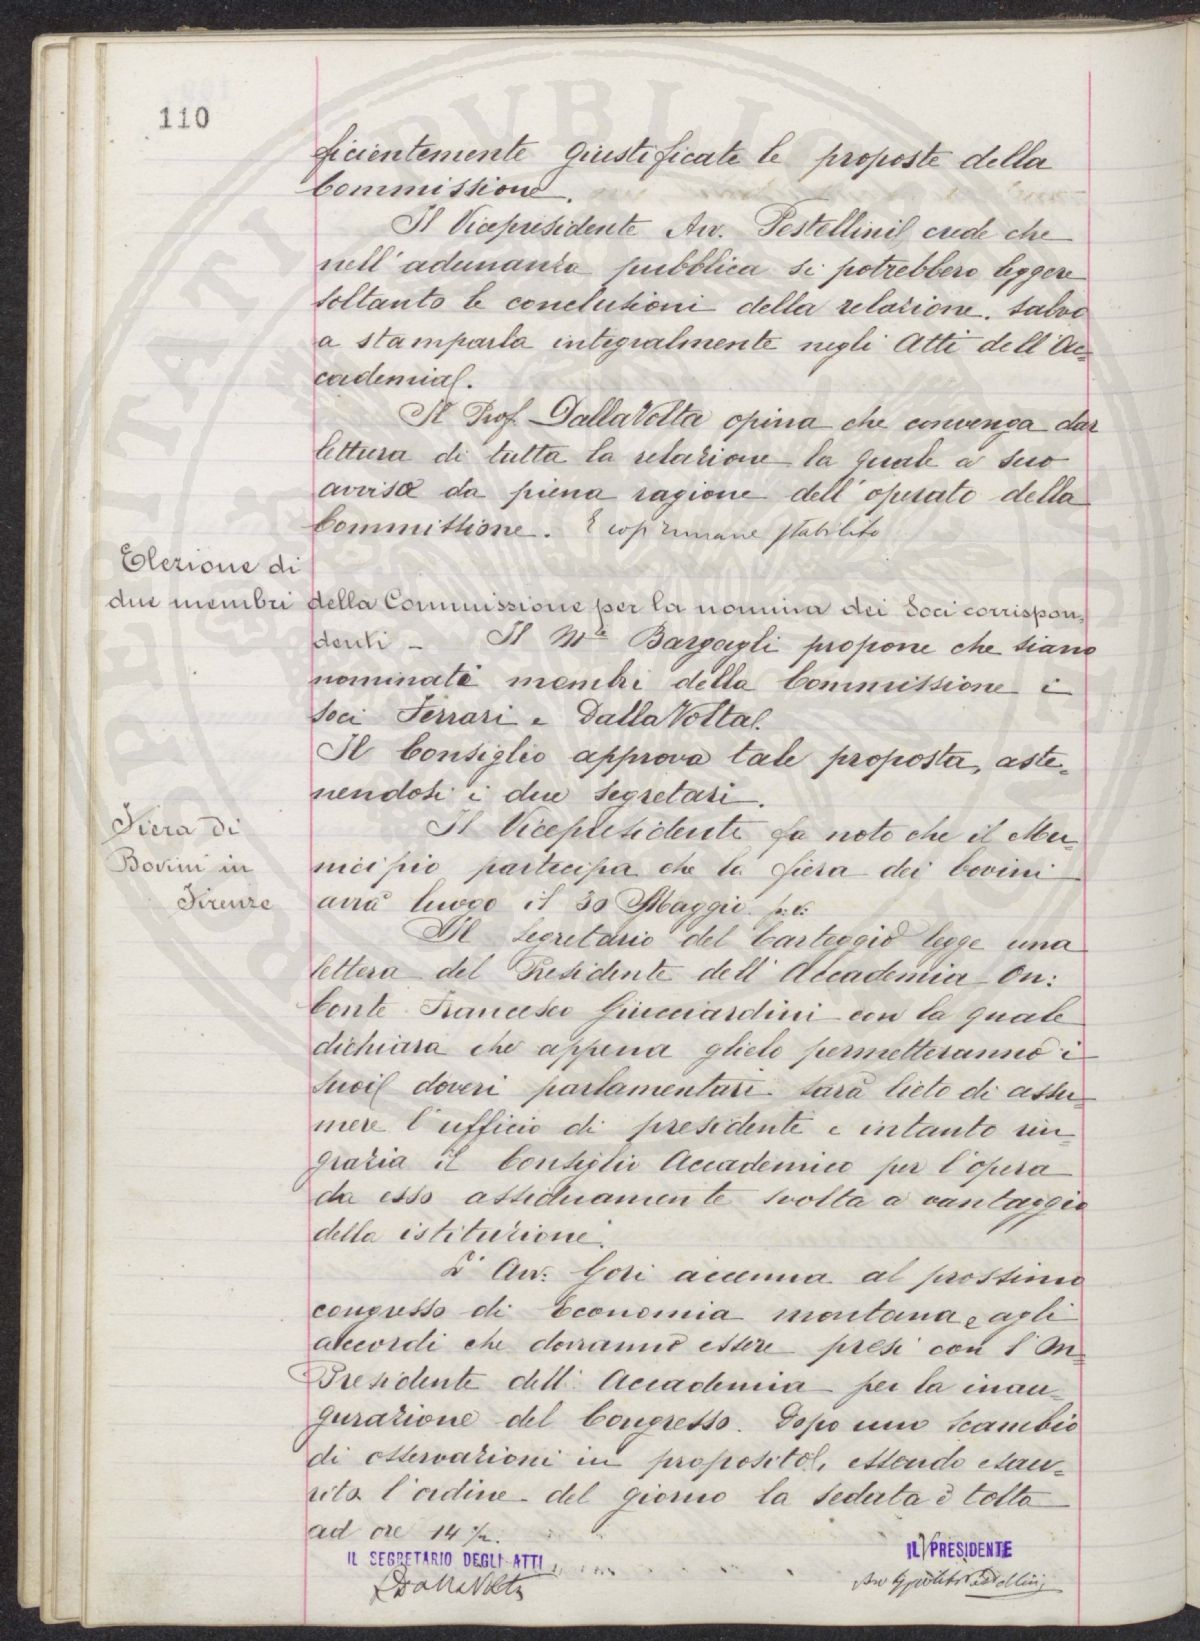 110
ficientemente giustificate le proposte della
Commissione.
Il Vicepresidente Avv. Pestellini crede che
nell'adunanza pubblica si potrebbero leggere
soltanto le conclusioni della relazione, salvo
a stamparla integralmente negli Atti dell'Ac=
cademia.
Il Prof. Dalla Volta opina che convenga dar
lettura di tutta la relazione la quale a suo
avviso da piena ragione dell'operato della
Commissione. E così rimane stabilito
Elezione di
due membri della Commissione per la nomina dei Soci corrispon=
denti - Il Mse Bargagli propone che siano
nominati membri della Commissione i
soci Ferrari e Dalla Volta.
Il Consiglio approva tale proposta, aste=
nendosi i due segretari.
Fiera di
Bovini in
Firenze
Il Vicepresidente fa noto che il Mu=
nicipio partecipa che la fiera dei bovini
avrà luogo il 30 Maggio p.v.
Il Segretario del Carteggio legge una
lettera del Presidente dell'Accademia On:
Conte Francesco Guicciardini con la quale
dichiara che appena glielo permetteranno i
suoi doveri parlamentari sarà lieto di assu=
mere l'ufficio di presidente e intanto rin=
grazia il Consiglio Accademico per l'opera
da esso assiduamente svolta a vantaggio
della istituzione.
L'Avv. Gori accenna al prossimo
congresso di Economia montana e agli
accordi che dovranno essere presi con l'On=
Presidente dell'Accademia per la inau=
gurazione del Congresso. Dopo uno scambio
di osservazioni in proposito, essendo esau=
rito l'ordine del giorno la seduta è tolta
ad ore 14 ½.
IL SEGRETARIO DEGLI ATTI
Dalla Volta
IL PRESIDENTE
Avv Ippolito Pestellini